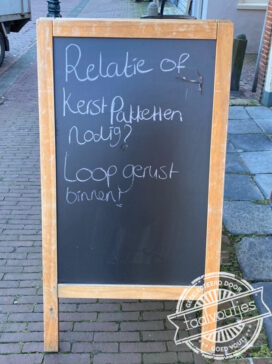 Relatie of
Kerst Pakketten
nodig?
Loop gerust
binnen!
taalvoutjes
GOED VOUT!